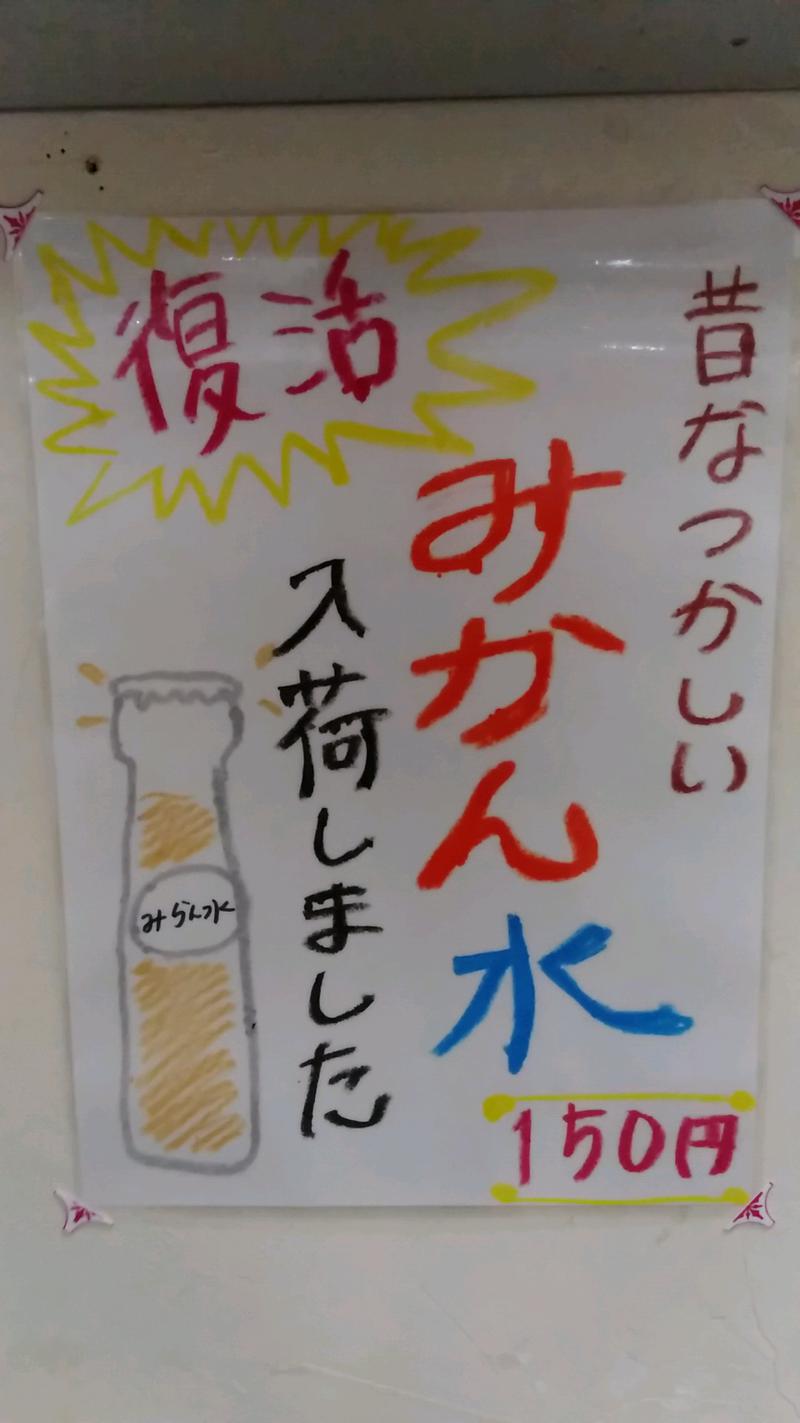 復活
昔なつかしい
みかん水
入荷しました
みかん水
150円